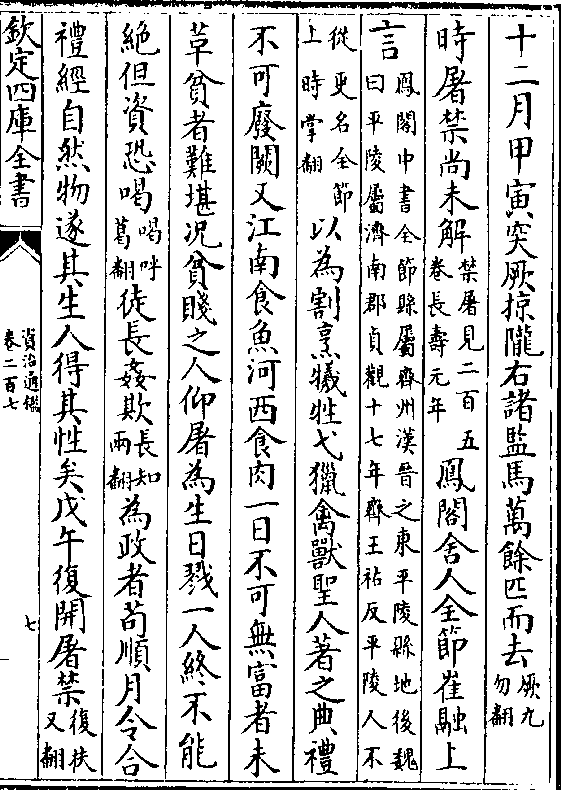 十二月甲寅突厥掠隴右諸監馬萬餘匹而去厥九勿翻
時屠禁尚未解禁屠見二百五卷長壽元年鳳閣舍人全節崔融上
言鳳閣中書全節縣屬齊州漢晉之東平陵縣地後魏曰平陵屬濟南郡貞觀十七年齊王祐反平陵人不
從更名全節上時掌翻以為割烹犧牲弋獵禽獸聖人著之典禮
不可廢闕又江南食魚河西食肉一日不可無富者未
草貧者難堪况貧賤之人仰屠為生日戮一人終不能
絶但資恐喝喝呼葛翻徒長姦欺長知兩翻為政者苟順月令合
禮經自然物遂其生人得其性矣戊午復開屠禁復扶又翻
欽定四庫全書
資治通鑑
卷二百七
七